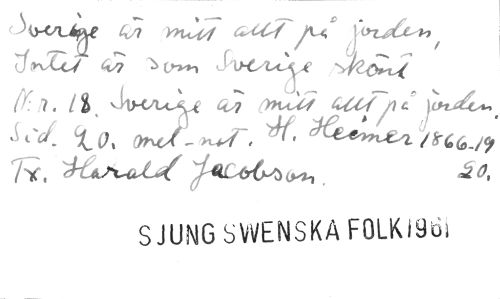 Sverige är mitt allt på jorden,
Intet är som Sverige skönt
N:r. 18. Sverige är mitt allt på jorden.
Sid. 20. mel-not. H. Heimer 1866-19
Tx. Harald Jacobson. 20.
SJUNG SWENSKA FOLK 1961